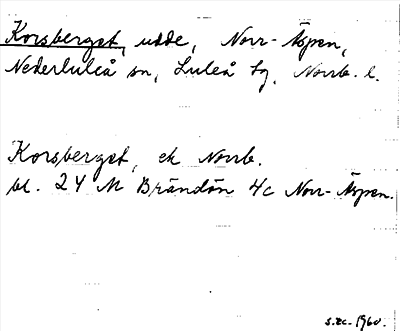 Korsberget, udde, Norr-Äspen,
Nederluleå sn, Luleå tg. Norrb. l.
Korsberget, ek Norrb.
bl. 24 M Brändön 4c Norr-Äspen.
s.ec. 1960.